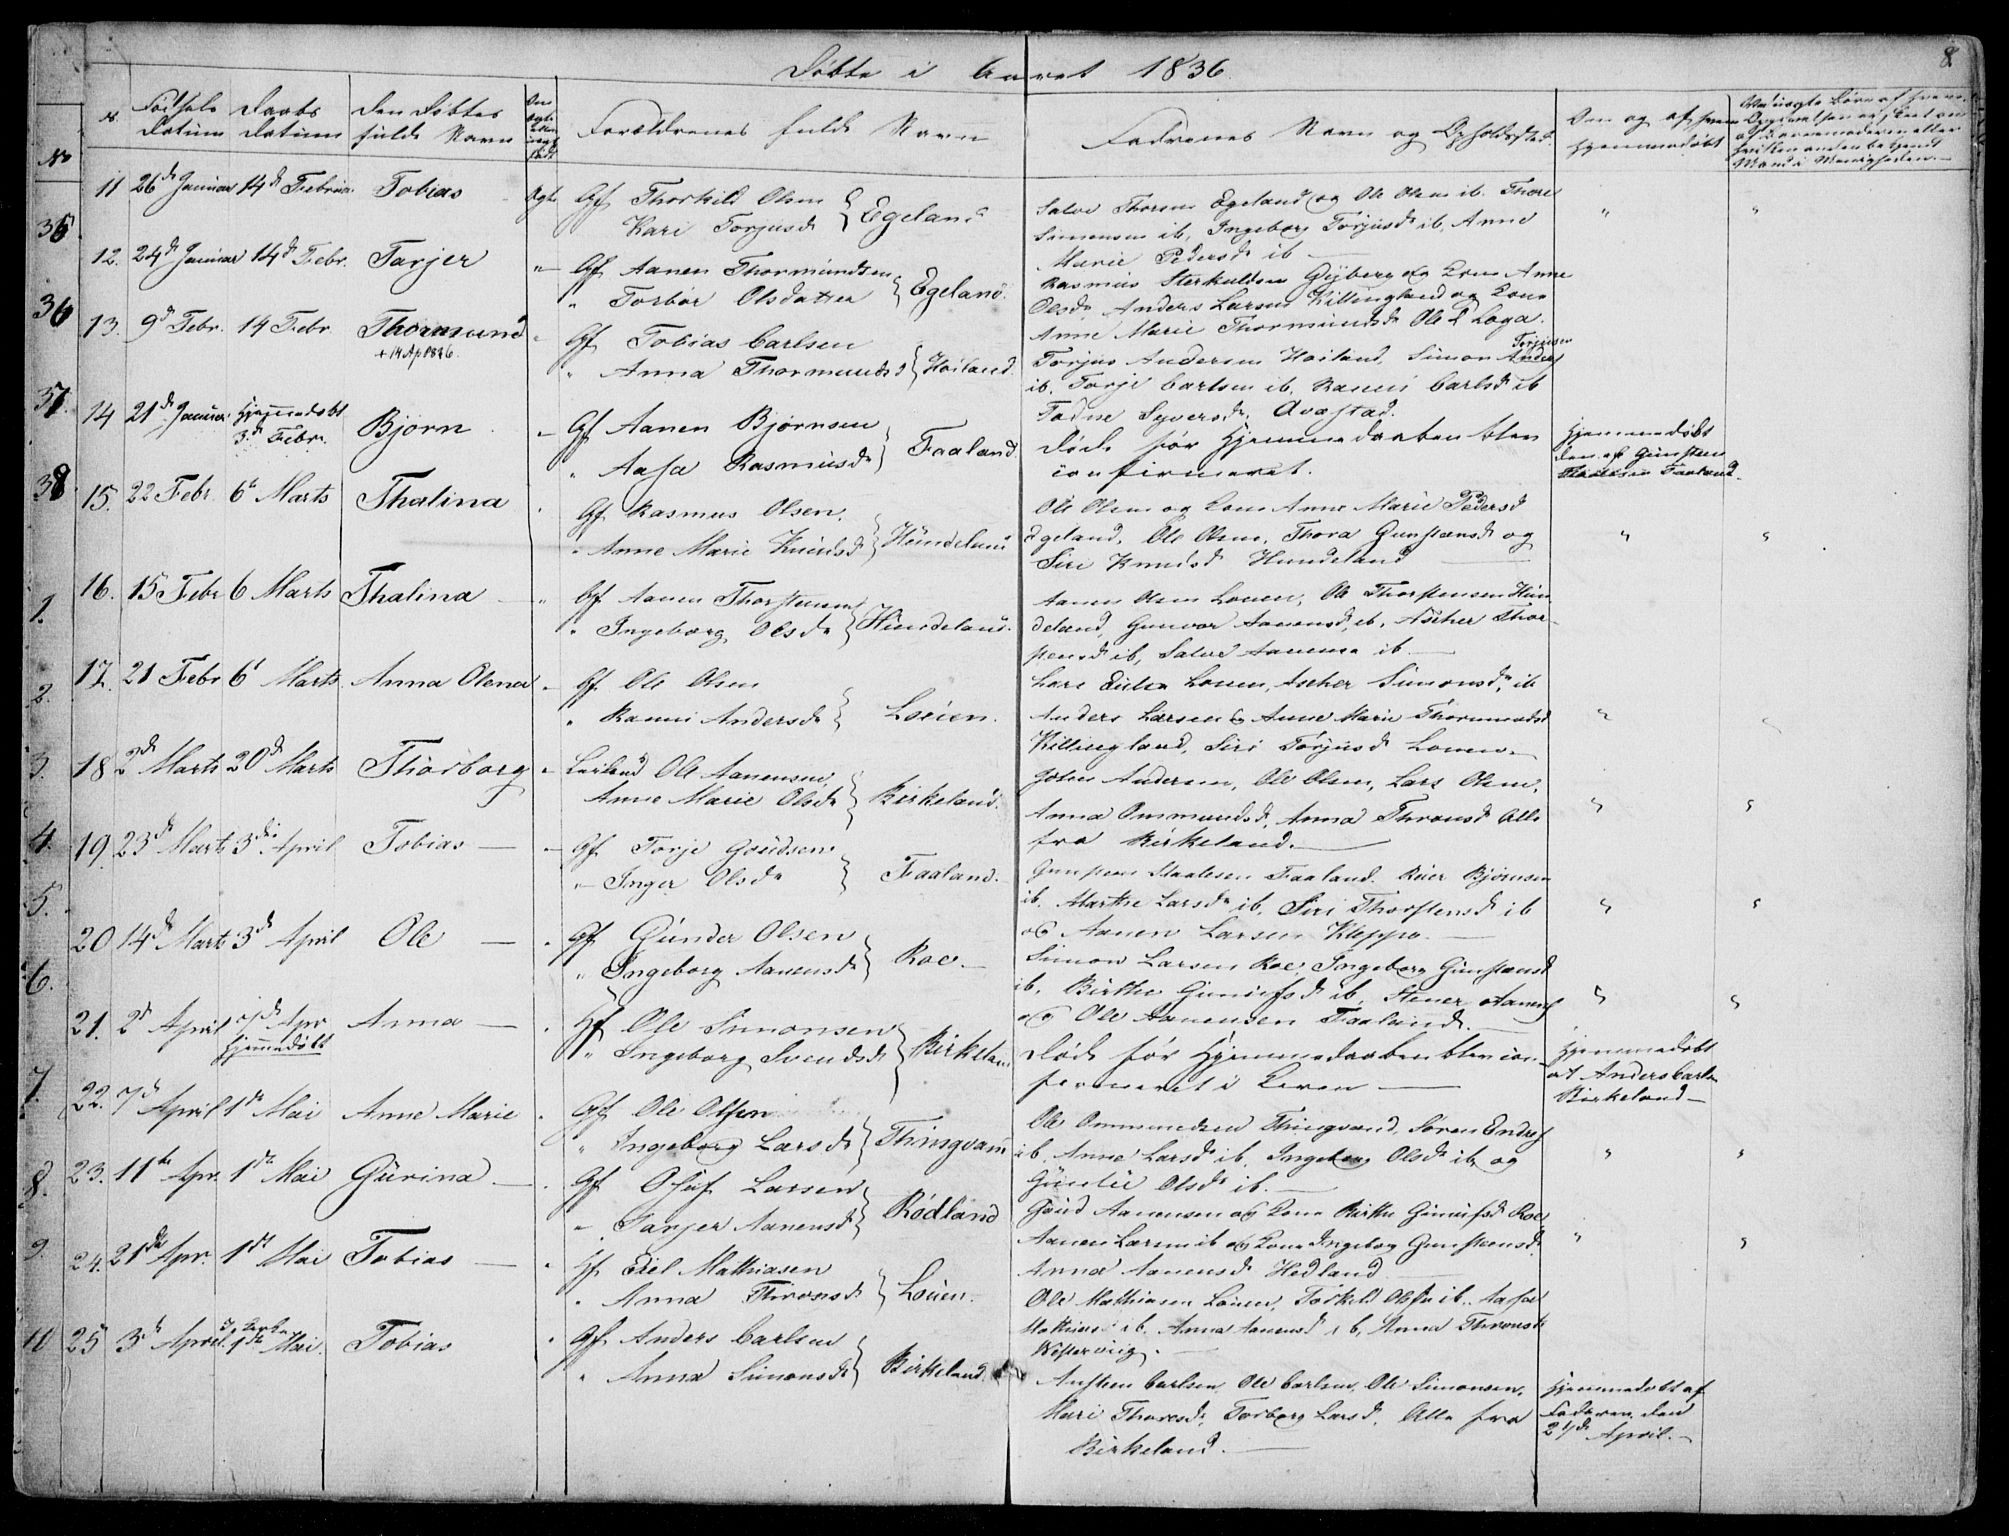 8.
Døbte i Aaret 1836.
No
Fødsels Datum
Daabs Datum
Den Døbtes fulde Navn
Om ægte eller uægte født
Forældrenes fulde Navn
Fadrenes Navn og Opholdssted.
Om og af hvem hjemmedøbt
11 26d Januar 14d Februar Tobias Ægte Gf Thorkild Olsen
Kari Torjusd Egeland
Salve Thorsen Egeland og Ole Olsen ib. Thore
Simensen ib, Ingeborg Torjusd ib, Anne
Marie Pedersd ib
12. 24d Januar 14d Febr. Tarjer Gf Aanen Thormundsen
Torbor Olsdatter Egeland.
Rasmus Gyberg og Kone Anne
Olsd Anders Larsen Killingland og Kone
Anne Marie Thormundsd Ole Loga.
13. 9d Febr. 14 Febr. Thormund
+ 14 Ap 1836.
Gf Tobias Carlsen
Anna Thormundsd Høiland.
Torjus Andersen Høiland, Simon
ib. Torje Carlsen ib, Rannei Carlsd ib
Syversd. Avestad.
14 21d Januar Hjemmedøbt 3d Febr. Bjorn
Gf Aanen Bjørnsen
Aasa Rasmusd Faaland
Døde før Hjemmedaaben blev
confirmeret.
Hjemmedøbt
den af Gunsten
Faaland.
15. 22 Febr. 6t Marts Thalina
Gf Rasmus Olsen.
Anne Marie Knudsd Hundeland
Ole Olsen og Kone Anne Marie Pedersd
Egeland, Ole Olsen, Thora Gunstensd og
Siri Knudsd Hundeland
16. 15 Febr 6 Marts Thalina
Gf Aanen Thorstensen
Ingeborg Olsd Hundeland.
Aanen Olsen Louen, Ole Thorstensen Hun-
deland, Gunvor Aanensd, ib, Ascher Thor-
stensd ib, Salve Aanensen ib.
17. 21 Febr 6t Marts Anna Olena
Gf. Ole Olsen
Ranni Andersd Louen.
Lars Louen, Ascher Simonsd, ib
Anders Larsen og Anne Marie Thormundsd
Killingland, Siri Torjusd Louen.
18 2d Marts 20d Marts Thorborg
Ole Aanensen
Anne Marie Olsd Birkeland.
John Andersen, Ole Olsen, Lars Olsen,
Anna Ommundsd, Anna Thronsd Alle
fra Birkeland.
19. 23d Marts 3die April Tobias
Gf Torje Goudsen
Inger Olsd Faaland.
Gunsten Staalesen Faaland. Reier Bjørnsen
ib. Marthe Larsd ib, Siri Thorstensd ib
og Aanen Larsen Kleppo.
20 14d Marts 3d April Ole
Gf Gunder Olsen
Ingeborg Aanensd Roe.
Simon Larsen Roe, Ingeborg Gunstensd
ib. Birthe Gunulfsd ib, Stener Aanens
og Ole Aanensen Faaland.
21. 2d April 7d Apr Hjemmedøbt Anna
Hf Ole Simonsen
Ingeborg Svendsd Birkeland
Døde før Hjemmedaaben blev con-
firmeret i Kirken
Hjemmedøbt
af Anders Carls
Birkeland
22. 7d April 1d Mai Anne Marie
Gf Ole Olsen
Ingeborg Larsd Thingvam
Ole Ommundsen Thingvand, Søren Endres
ib, Anne Larsd ib, Ingeborg Olsd ib og
Olsd ib.
23. 11te Apr. 1d Mai Gurina
Gf Oluf Larsen
Tarjer Aanensd Rødland
Goud Aanensen og Kone Birthe Gunulfsd Roe
Aanen Larsen ib og Kone Ingeborg Gunstensd
Anna Aanensd Hedland
24. 21de Apr. 1d Mai Tobias
Hf Exel Mathiasen
Anna Thronsd Louen.
Ole Mathiasen Louen, Torkild Olsen ib. Aasa
Mathiasd ib, Anna Aanensd ib, Anna Thronsd
25 3d April 1d Mai. Tobias
Gf Anders Carlsen
Anna Simonsd Birkeland
Austen Carlsen, Ole Carlsen, Ole Simonsen,
Mari Thoresd, Torborg Larsd. Alle fra
Birkeland.
Hjemmedøbt af
Faderen den
April.
No
35
36
37.
38
1.
2.
3.
4.
5.
6.
7.
8.
9.
10